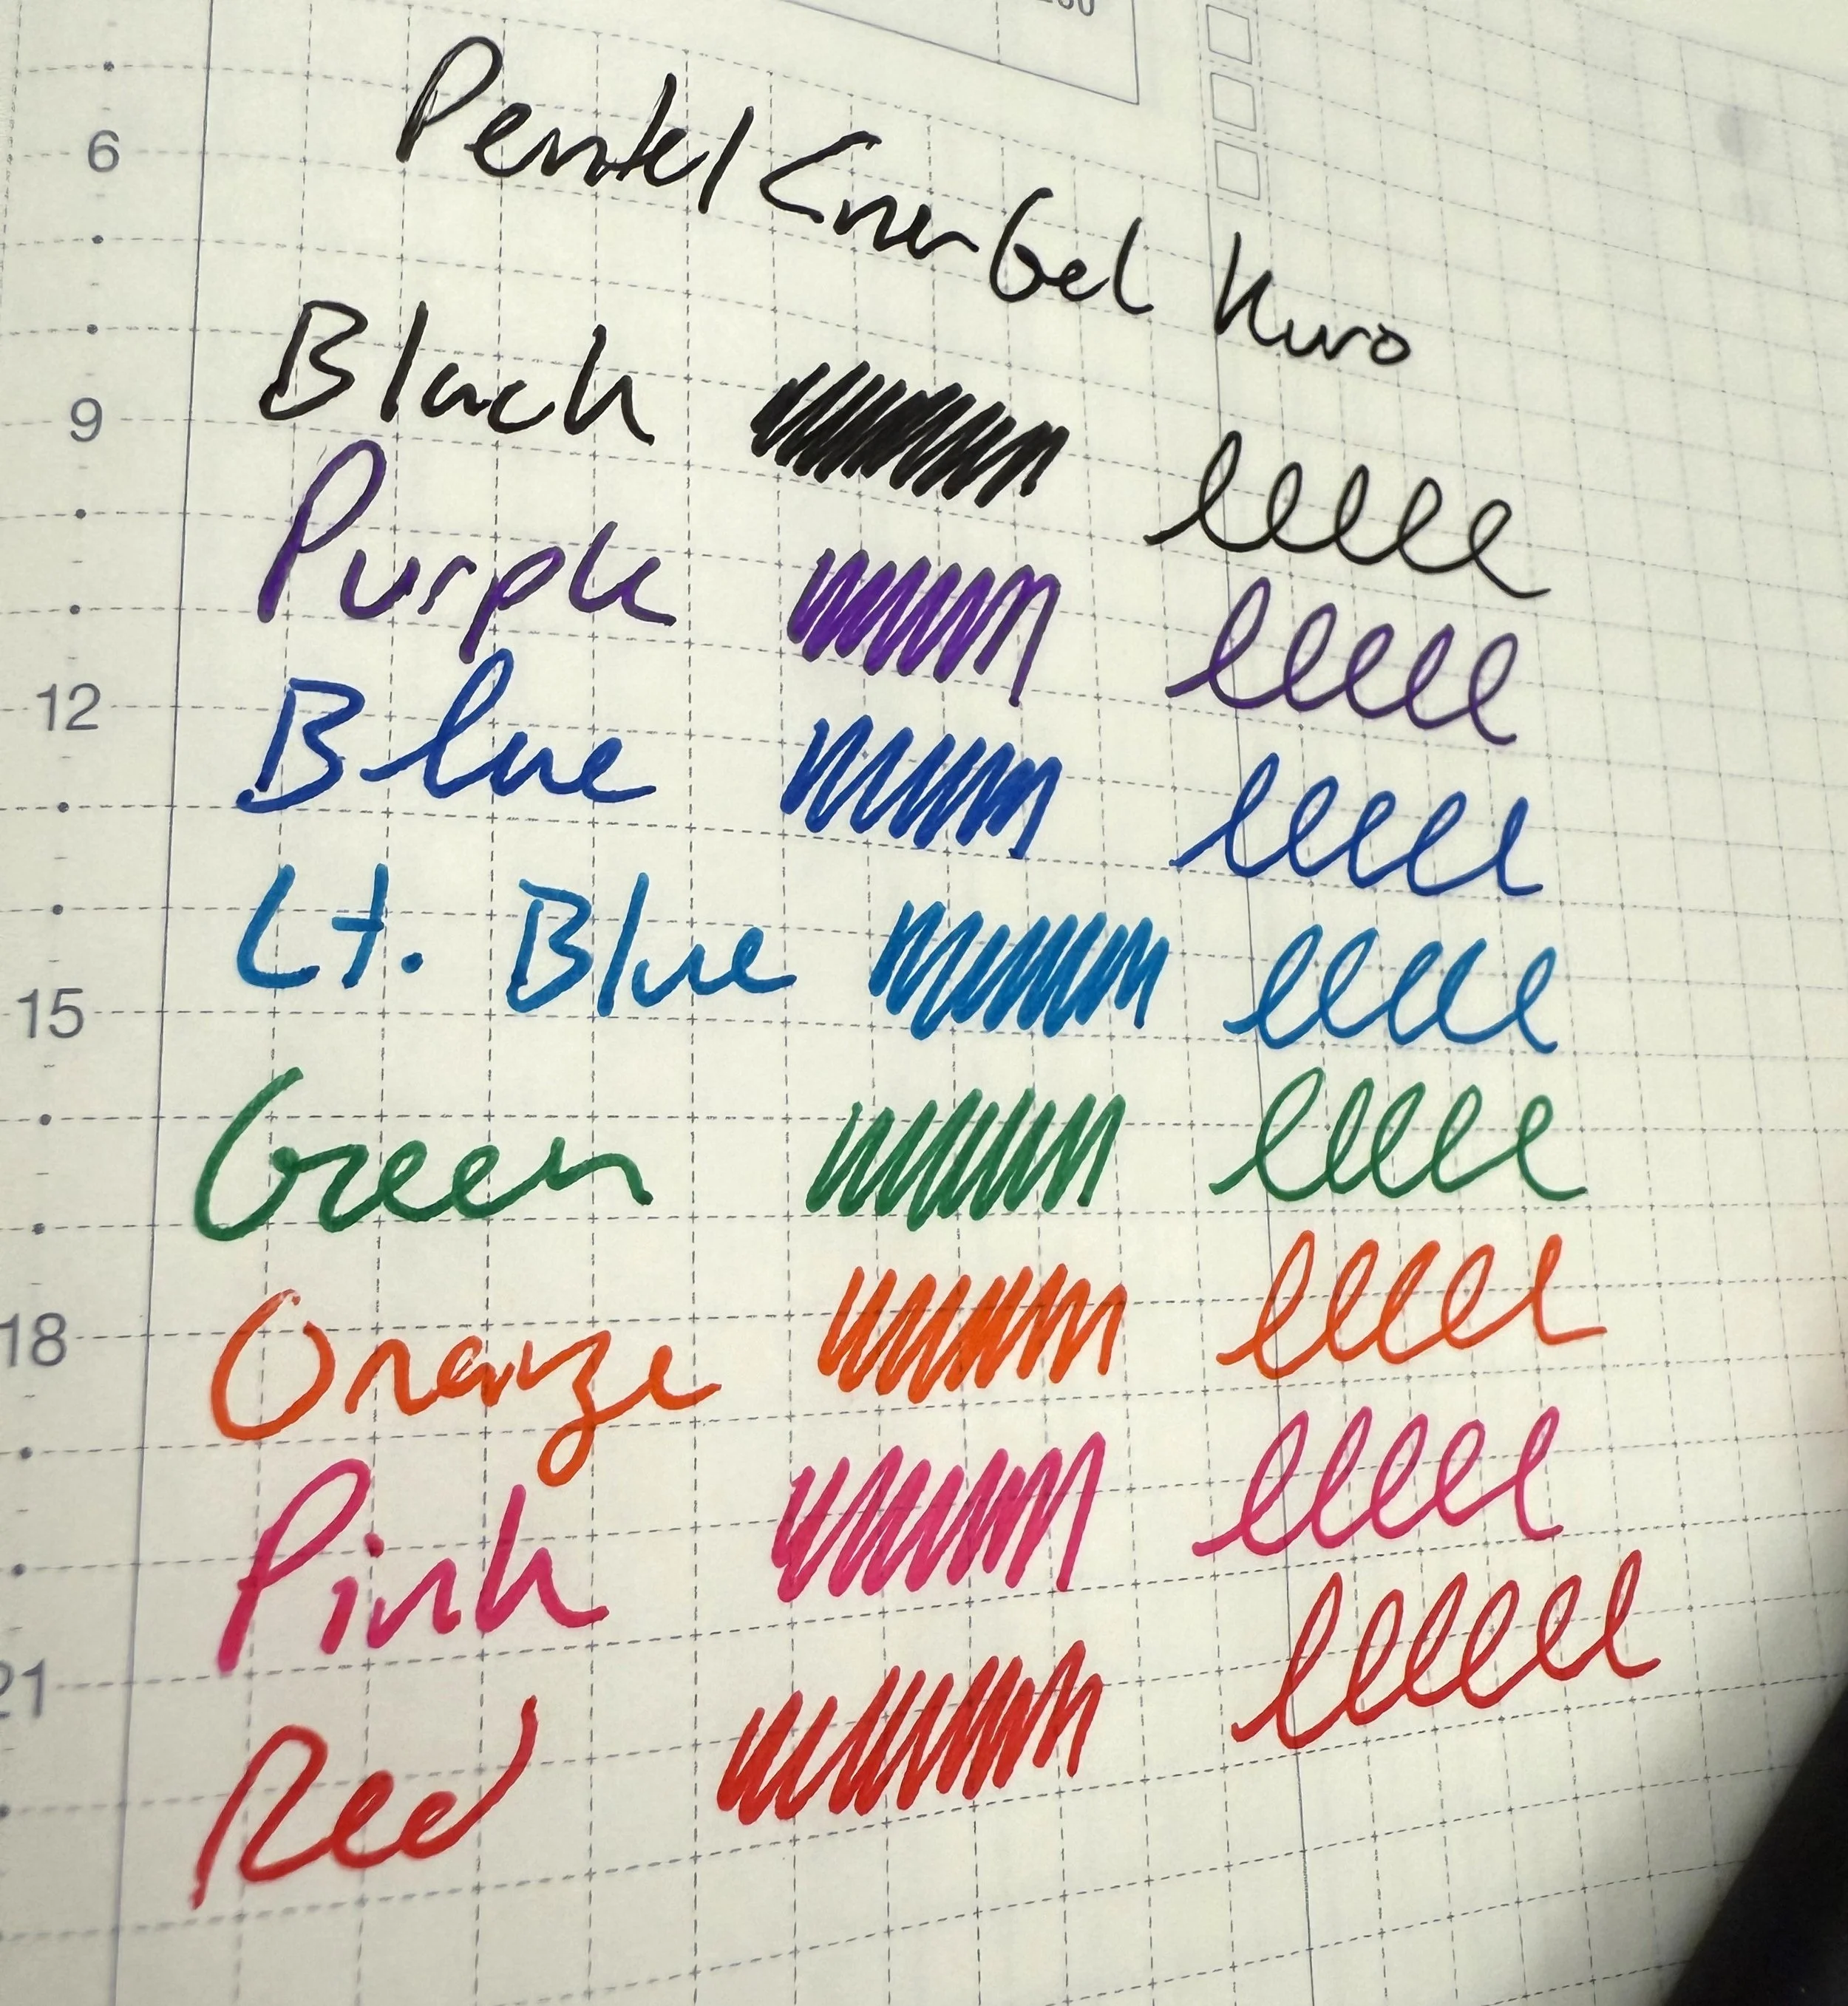 Pentel EnerGel Kuro
6
Black
9
Purple
12
Blue
Lt. Blue
15
Green
Orange
18
Pink
21
Red